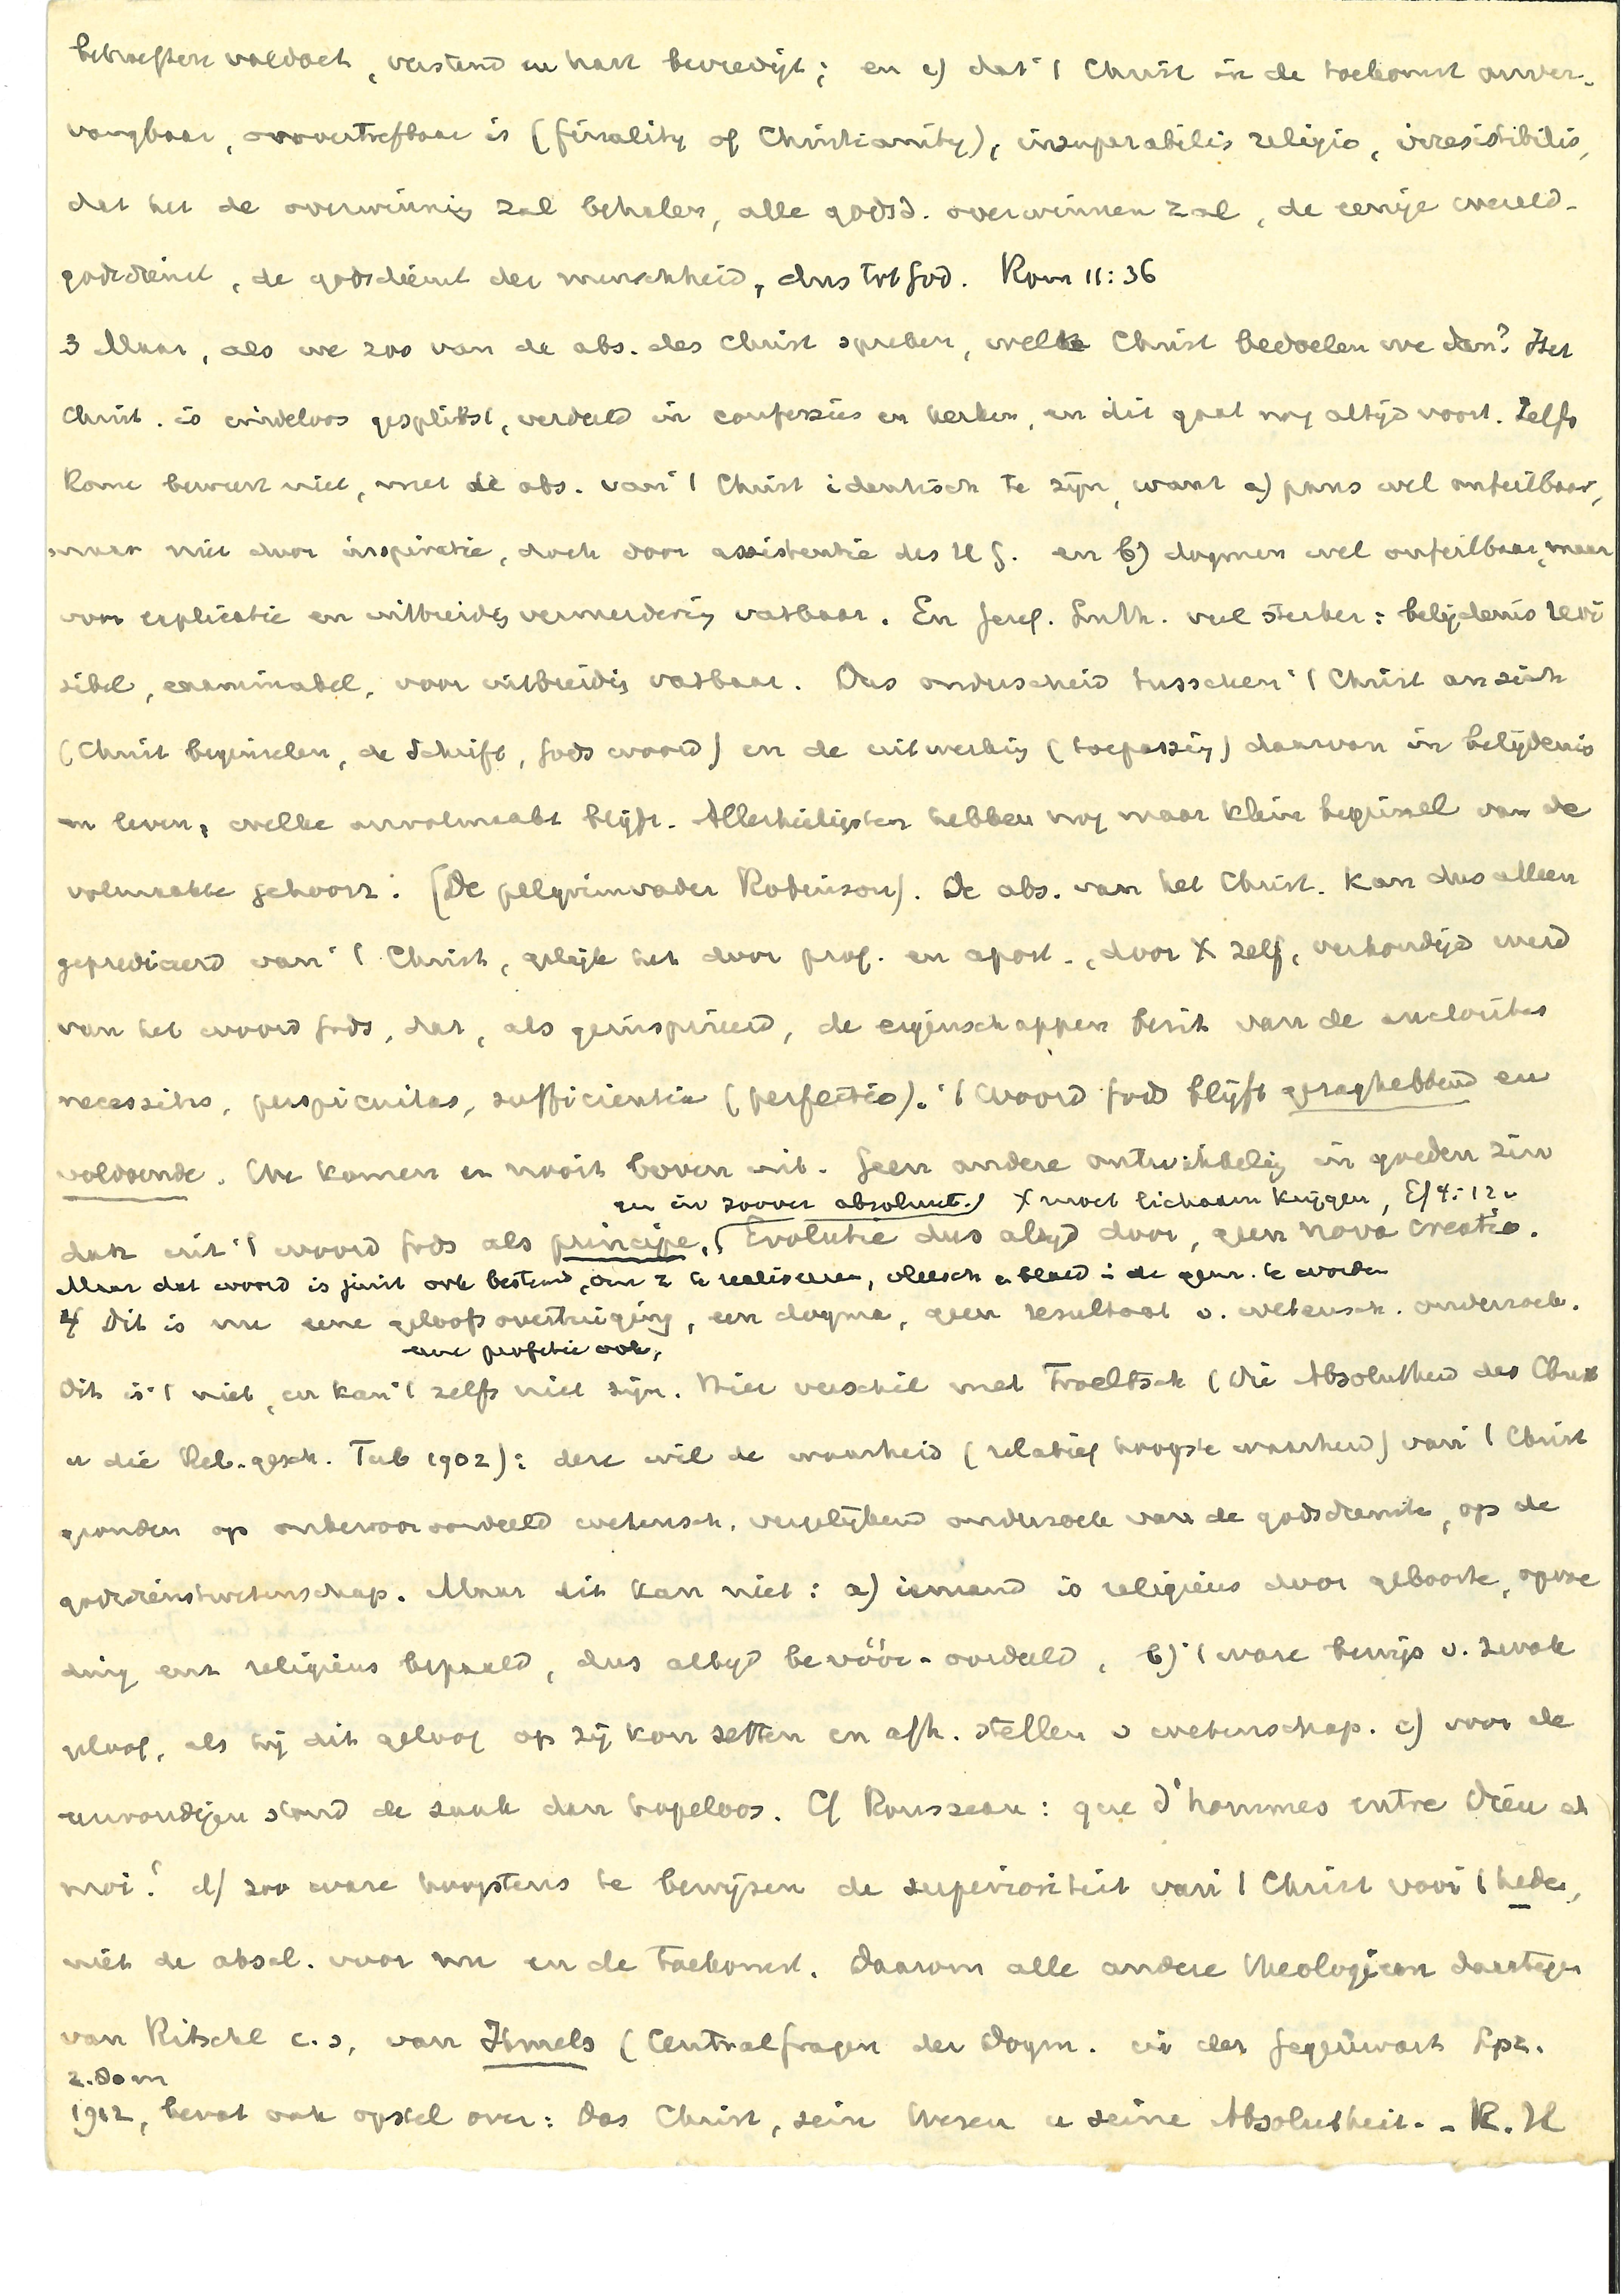 behoeften voldoet, verstand en hart bevredigt; en c) dat 't Christ in de toekomst onver-
vangbaar, onovertrefbaar is (finality of Christianity), insuperabilis religio, irresistibilis,
dat het de overwinnig zal behalen, alle godsd. overwinnen zal, de eenige wereld-
godsdienst, de godsdienst der menschheid, dus tot God. Rom 11:36
3 Maar, als we zoo van de abs. des Christ spreken, welk Christ bedoelen we dan? Het
Christ. is eindeloos gesplitst, verdeeld in confessies en kerken, en dit gaat nog altijd voort. Zelfs
Rome beweert niet, met de abs. van 't Christ identisch te zijn, want a) paus wel onfeilbaar,
maar niet door inspiratie, doch door assistentie des H G. en b) dogmen wel onfeilbaar, maar
voor explicatie en uitbreidg vermeerderig vatbaar. En Geref. Luth. veel sterker: belijdenis revi
sibel, examinabel, voor uitbreidig vatbaar. Dus onderscheid tusschen 't Christ an sich
(Christ beginselen, de Schrift, Gods woord) en de uitwerkig (toepassig) daarvan in belijdenis
en leven, welke onvolmaakt blijft. Allerheiligsten hebben nog maar klein beginsel van de
volmaakte gehoorz. (De pelgrimvader Robinson). De abs. van het Christ. kan dus alleen
geprediceerd van 't Christ, gelijk het door prof. en apost., door X zelf, verkondigd werd
van het woord Gods, dat, als geinspireerd, de eigenschappen bezit van de auctoritas
necessitas, perspicuitas, sufficientia (perfectio). 't Woord Gods blijft gezaghebbend en
voldoende. We komen er nooit boven uit. Geen andere ontwikkelig in goeden zin
en in zoover absoluut.) X moet lichaam krijgen, Ef 4:12v
dan uit 't woord Gods als principe. ( Evolutie dus altijd door, geen nova creatio.
Maar dat woord is juist ook bestemd, om z te realiseeren, vleesch en bloed i de gem. te worden
4 Dit is nu eene geloofsovertuiging, een dogma, geen resultaat v. wetensch. onderzoek.
eene profetie ook,
Dit is 't niet, en kan 't zelfs niet zijn. Hier verschil met Troeltsch (Die Absolutheid des Christ
u die Rel.-gesch. Tub 1902): deze wil de waarheid (relatief hoogste waarheid) van 't Christ
gronden op onbevooroordeeld wetensch. vergelijkend onderzoek van de godsdienste, op de
godsdienstwetenschap. Maar dit kan niet: a) iemand is religieus door geboorte, opvoe
ding enz religieus bepaald, dus altijd bevóór-oordeeld, b) 't ware bewijs v. zwak
geloof, als hij dit geloof op zij kon zetten en afh. stellen v wetenschap. c) voor de
eenvoudigen stond de zaak dan hopeloos. Cf Rousseau: que d'hommes entre Dieu et
moi! d) zoo ware hoogstens te bewijzen de superioriteit van 't Christ voor 't heden,
niet de absol. voor nu en de toekomst. Daarom alle andere theologieen daartegen
van Ritschl c.s, van Ihmels (Centralfragen der Dogm. in der Gegenwart Lpz.
1912, bevat ook opstel over: Das Christ, sein Wesen u seine Absolutheit. - R. H